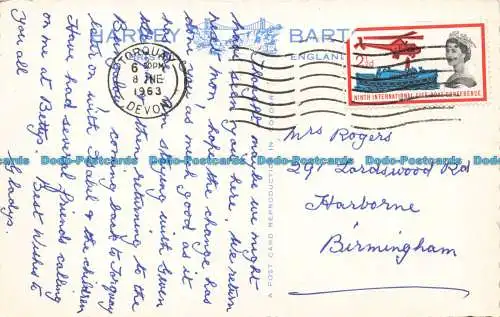 HARVEY BARTON
ENGLAND
A POST CARD REPRODUCTION IN
TORQUAY
6 PM
8 JNE
1963
DEVON
2½d
NINTH INTERNATIONAL LIFE-BOAT CONFERENCE
Mrs Rogers
291 Lordswood Rd
Harborne
Birmingham
Thought maybe we might
have seen you as here. We return
next mon. I hope the change has
done as much good as it
staying with Gwen
then returning to the
coming back to Torquay
later on with Isabel & the children
Have had several friends calling
on me at Bettys. Best Wishes to
You all Gladys.
Dodo-Postcards Dodo-Postcards Dodo-Postcards Dodo-Postcards Dodo-Postcards